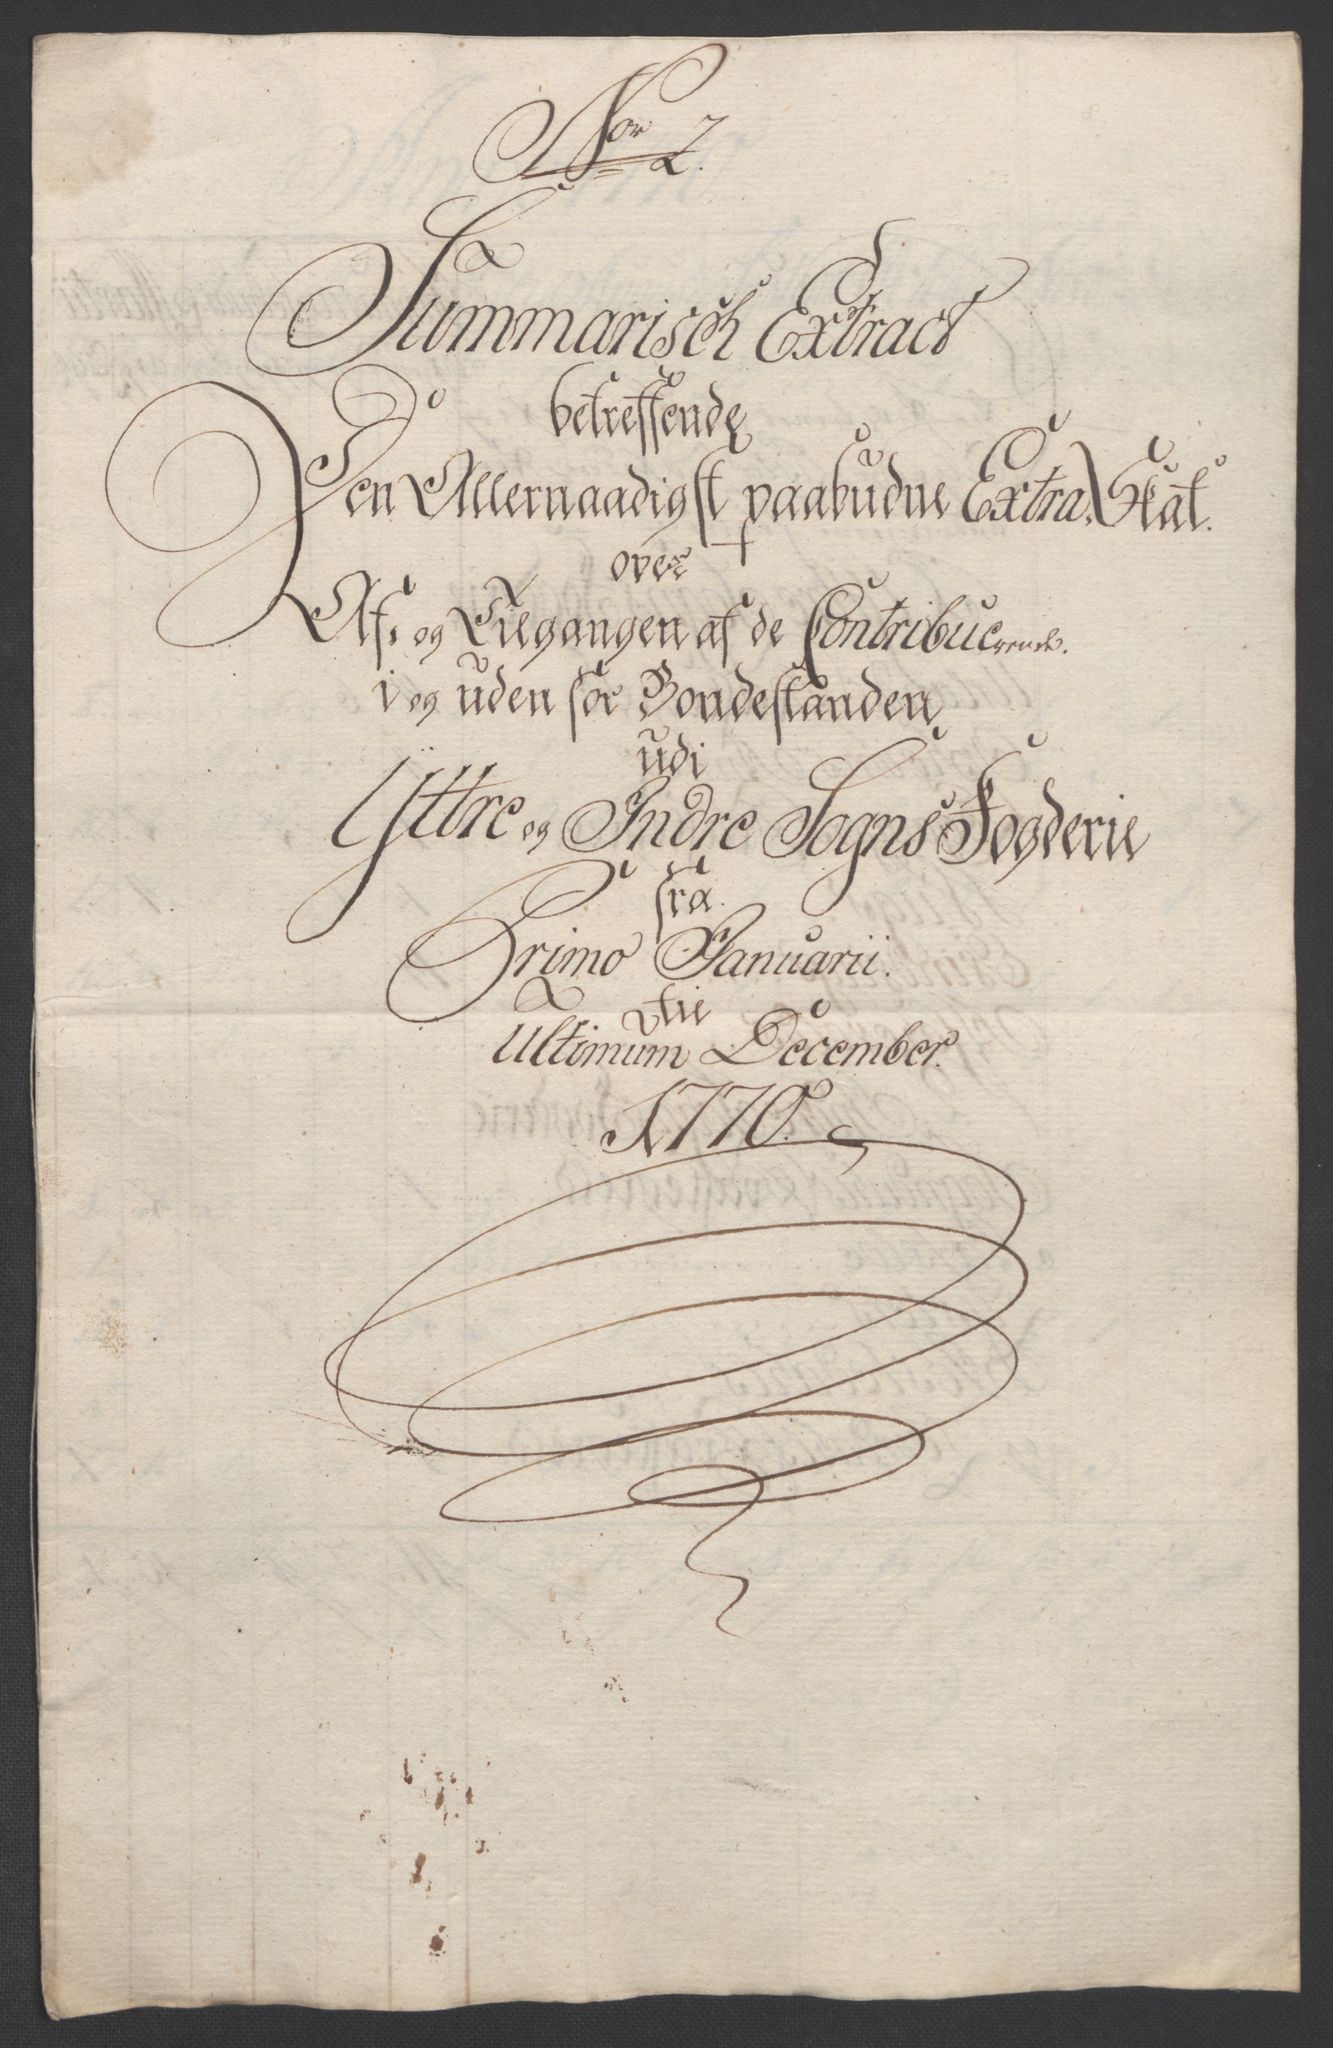 Nor 2.
Summarisch Extract
betreffende
Den Allernaadigst paabudne Extra Skat.
over
Af- og Tilgangen af de Contribuerende.
i og uden for Bondestanden
udi
Yttre og Indre Sogns Fogderie
fra
Primo Januarii.
til
Ultimum December.
1770.